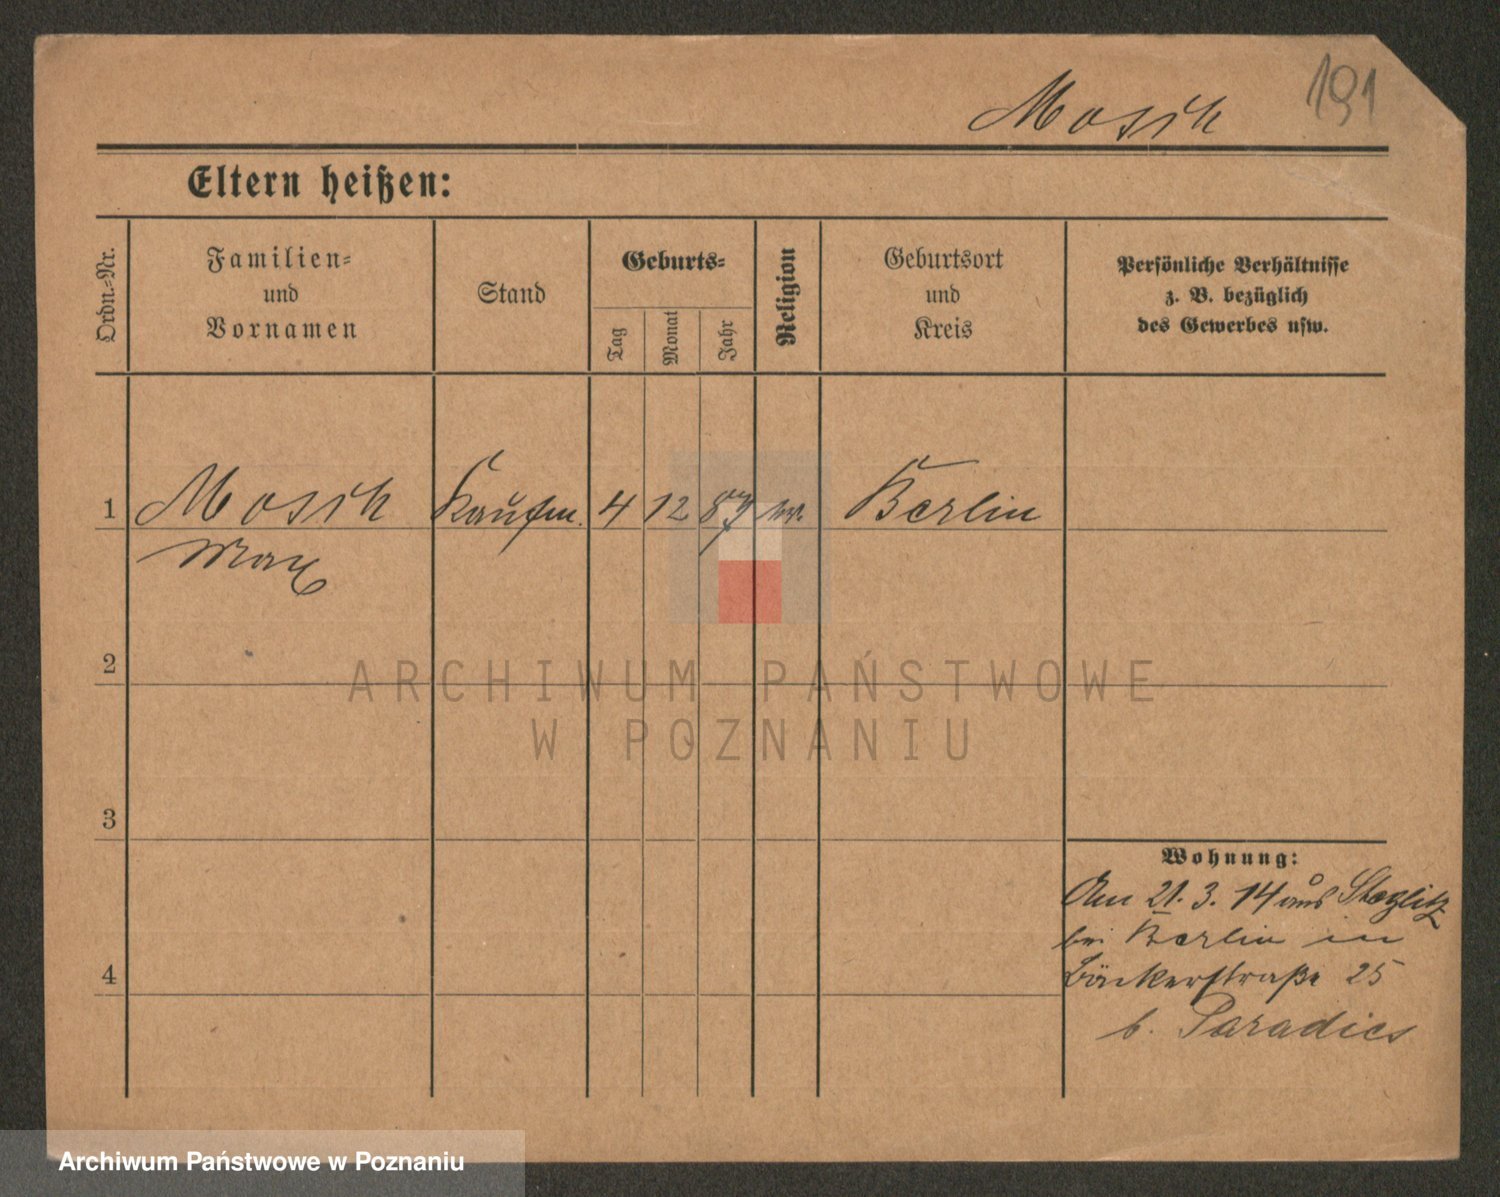 191
Mosih
Eltern heißen:
Ordn.-Nr.
Familien-
und
Vornamen
Stand
Geburts-
Tag
Monat
Jahr
Religion
Geburtsort
und
Kreis
Persönliche Verhältnisse
z. B. bezüglich
des Gewerbes usw.
1 Mosih Kaufm. 4 12 87 Berlin
Max
2
3
4
Wohnung:
Am 21. 3. 14 aus Steglitz
bei Berlin in
Bäckerstraße 25
b. Paradies
ARCHIWUM PAŃSTWOWE
W POZNANIU
Archiwum Państwowe w Poznaniu